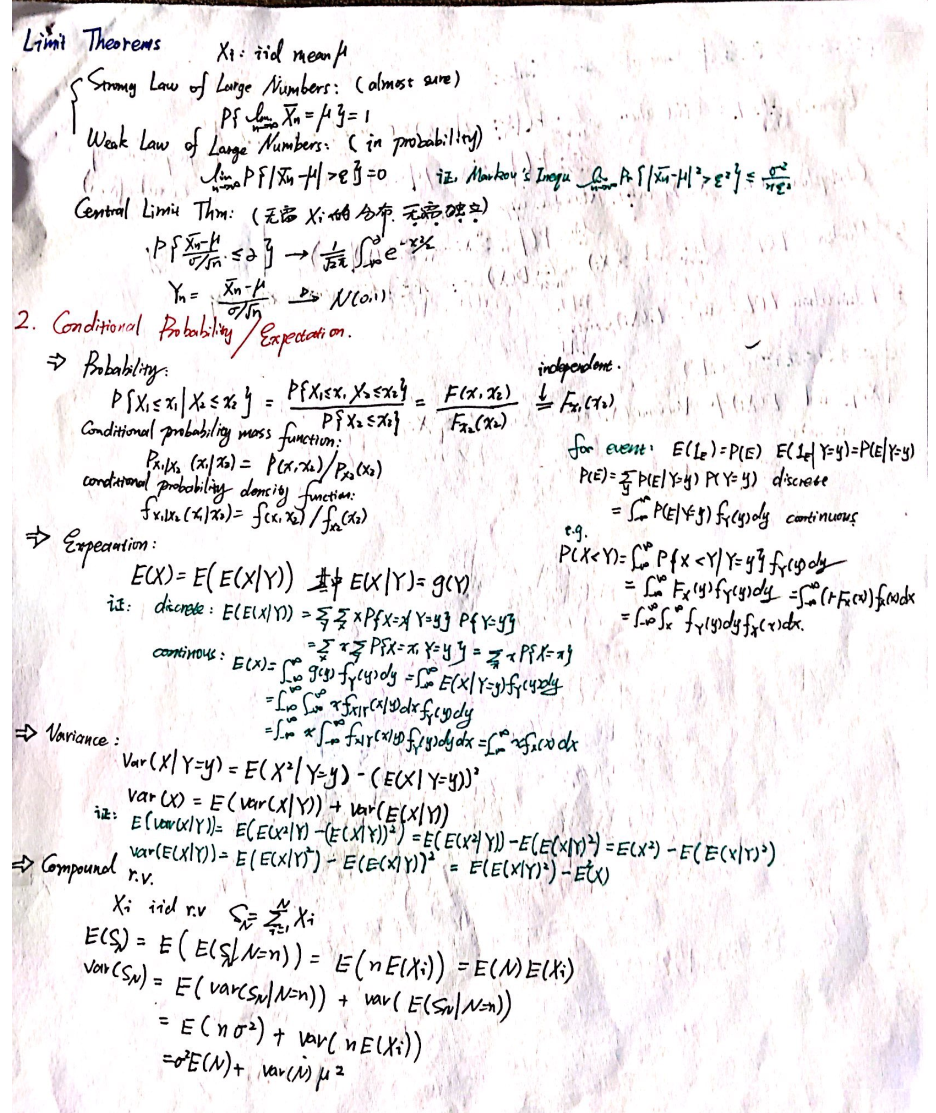 Limit Theorems
Xi: iid mean μ
Strong Law of Large Numbers: (almost sure)
P{lim n→∞ X̄n = μ} = 1
Weak Law of Large Numbers: (in probability)
lim n→∞ P{|X̄n-μ|>ε}=0 证. Markov's Inequ lim n→∞ Pr{|X̄n-μ|²>ε²} ≤ σ²/nε²
Central Limit Thm: (无需 Xi 的分布. 无需独立)
P{(X̄n-μ)/(σ/√n) ≤ a} → (1/√2π ∫_{-∞}^{a} e^{-x²/2}
Yn = (X̄n-μ)/(σ/√n) D→ N(0,1)
2. Conditional Probability/Expectation.
⇒ Probability:
independent.
P{X₁≤x₁|X₂≤x₂} = P{X₁≤x₁, X₂≤x₂}/P{X₂≤x₂} = F(x₁,x₂)/F_{X₂}(x₂) ↓= F_{X₁}(x₁)
Conditional probability mass function:
P_{X₁|X₂}(x₁|x₂) = P(x₁,x₂)/P_{X₂}(x₂)
conditional probability density function:
f_{X₁|X₂}(x₁|x₂) = f(x₁,x₂)/f_{X₂}(x₂)
for event: E(1_E)=P(E) E(1_E|Y=y)=P(E|Y=y)
P(E)=Σ_y P(E|Y=y) P(Y=y) discrete
= ∫_{-∞}^{∞} P(E|Y=y) f_Y(y)dy continuous
e.g.
P(X<Y)=∫_{-∞}^{∞} P{X<Y|Y=y} f_Y(y)dy
= ∫_{-∞}^{∞} F_X(y)f_Y(y)dy = ∫_{-∞}^{∞}(1-F_Y(x))f_X(x)dx
= ∫_{-∞}^{∞}∫_x^{∞} f_Y(y)dy f_X(x)dx.
⇒ Expectation:
E(X) = E(E(X|Y)) 其中 E(X|Y) = g(Y)
证: discrete: E(E(X|Y)) = Σ_y Σ_x x P{X=x|Y=y} P{Y=y}
= Σ_x x Σ_y P{X=x, Y=y} = Σ_x x P{X=x}
continous: E(X)=∫_{-∞}^{∞} g(y) f_Y(y)dy = ∫_{-∞}^{∞} E(X|Y=y)f_Y(y)dy
= ∫_{-∞}^{∞}∫_{-∞}^{∞} x f_{X|Y}(x|y)dx f_Y(y)dy
= ∫_{-∞}^{∞} x ∫_{-∞}^{∞} f_{X|Y}(x|y) f_Y(y)dy dx = ∫_{-∞}^{∞} x f_X(x)dx
⇒ Variance:
Var(X|Y=y) = E(X²|Y=y) - (E(X|Y=y))²
var(X) = E(var(X|Y)) + var(E(X|Y))
证: E(var(X|Y)) = E(E(X²|Y) - (E(X|Y))²) = E(E(X²|Y)) - E(E(X|Y)²) = E(X²) - E(E(X|Y)²)
var(E(X|Y)) = E(E(X|Y)²) - E(E(X|Y))² = E(E(X|Y)²) - E²(X)
⇒ Compound r.v.
Xi iid r.v S_N = Σ_{i=1}^{N} Xi
E(S_N) = E(E(S_N|N=n)) = E(nE(Xi)) = E(N)E(Xi)
var(S_N) = E(var(S_N|N=n)) + var(E(S_N|N=n))
= E(nσ²) + var(nE(Xi))
= σ²E(N) + var(N) μ²